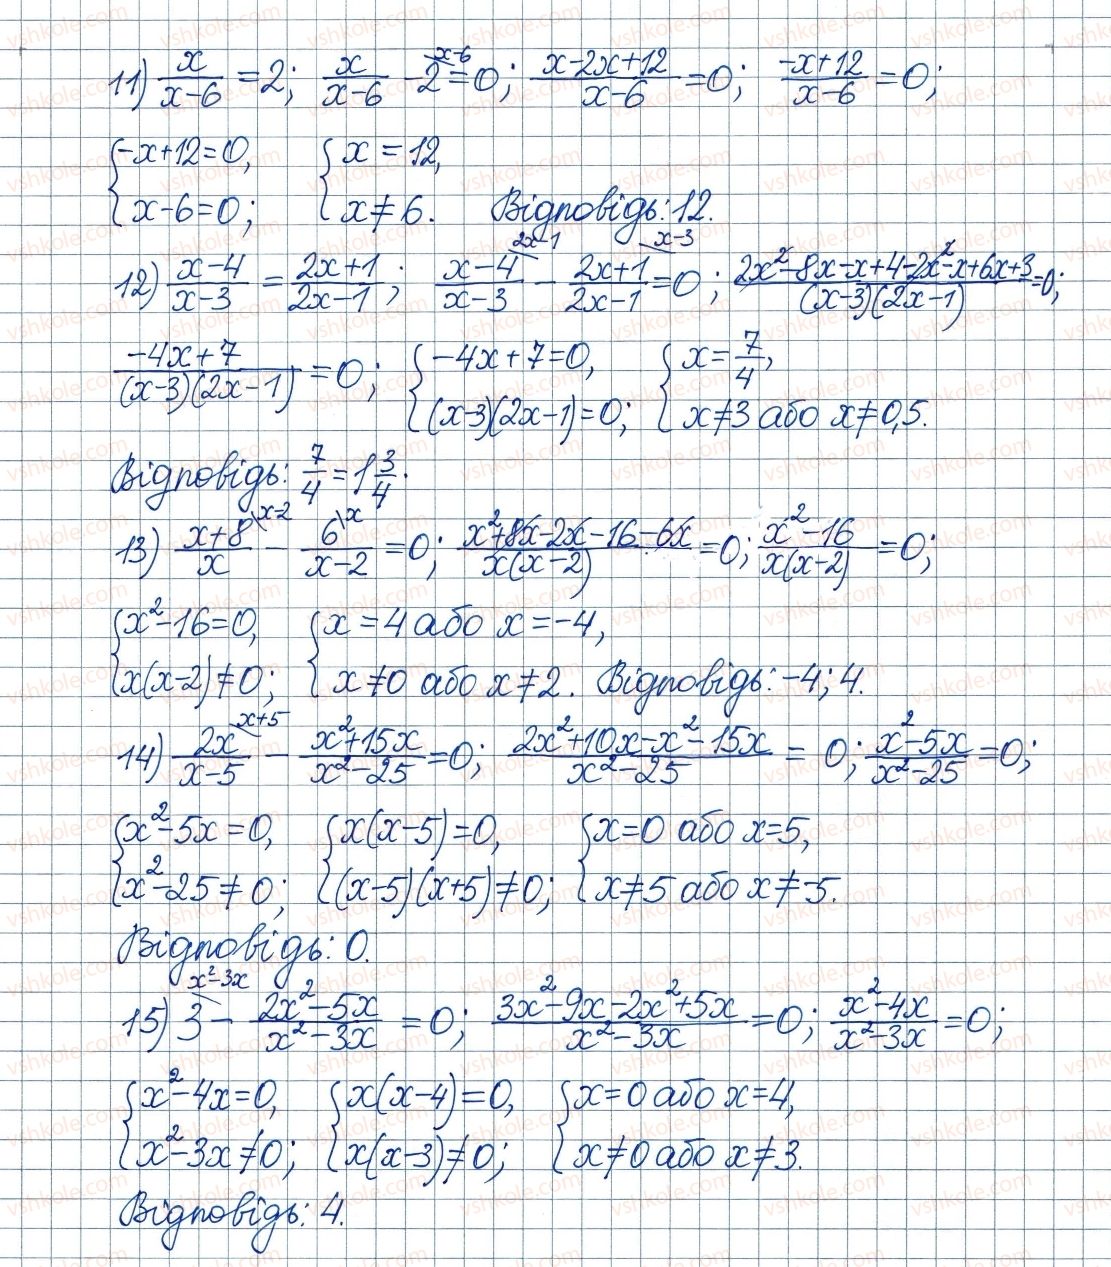 11) x/(x-6) = 2; x/(x-6) - 2 \x-6 = 0; (x-2x+12)/(x-6) = 0; (-x+12)/(x-6) = 0;
{ -x+12=0, { x = 12,
{ x-6=0; { x≠6. Відповідь: 12.
12) (x-4)/(x-3) = (2x+1)/(2x-1); (x-4)/(x-3) \2x-1 - (2x+1)/(2x-1) \x-3 = 0; (2x²-8x-x+4-2x²-x+6x+3)/((x-3)(2x-1)) = 0;
(-4x+7)/((x-3)(2x-1)) = 0; { -4x+7=0, { x = 7/4,
{ (x-3)(2x-1)=0; { x≠3 або x≠0,5.
Відповідь: 7/4 = 1 3/4.
13) (x+8)/x \x-2 - 6/(x-2) \x = 0; (x²+8x-2x-16-6x)/(x(x-2)) = 0; (x²-16)/(x(x-2)) = 0;
{ x²-16=0, { x = 4 або x = -4,
{ x(x-2)≠0; { x≠0 або x≠2. Відповідь: -4; 4.
14) 2x/(x-5) \x+5 - (x²+15x)/(x²-25) = 0; (2x²+10x-x²-15x)/(x²-25) = 0; (x²-5x)/(x²-25) = 0;
{ x²-5x=0, { x(x-5)=0, { x=0 або x=5,
{ x²-25≠0; { (x-5)(x+5)≠0; { x≠5 або x≠-5.
Відповідь: 0.
15) 3 \x²-3x - (2x²-5x)/(x²-3x) = 0; (3x²-9x-2x²+5x)/(x²-3x) = 0; (x²-4x)/(x²-3x) = 0;
{ x²-4x=0, { x(x-4)=0, { x=0 або x=4,
{ x²-3x≠0; { x(x-3)≠0; { x≠0 або x≠3.
Відповідь: 4.
vshkole.com